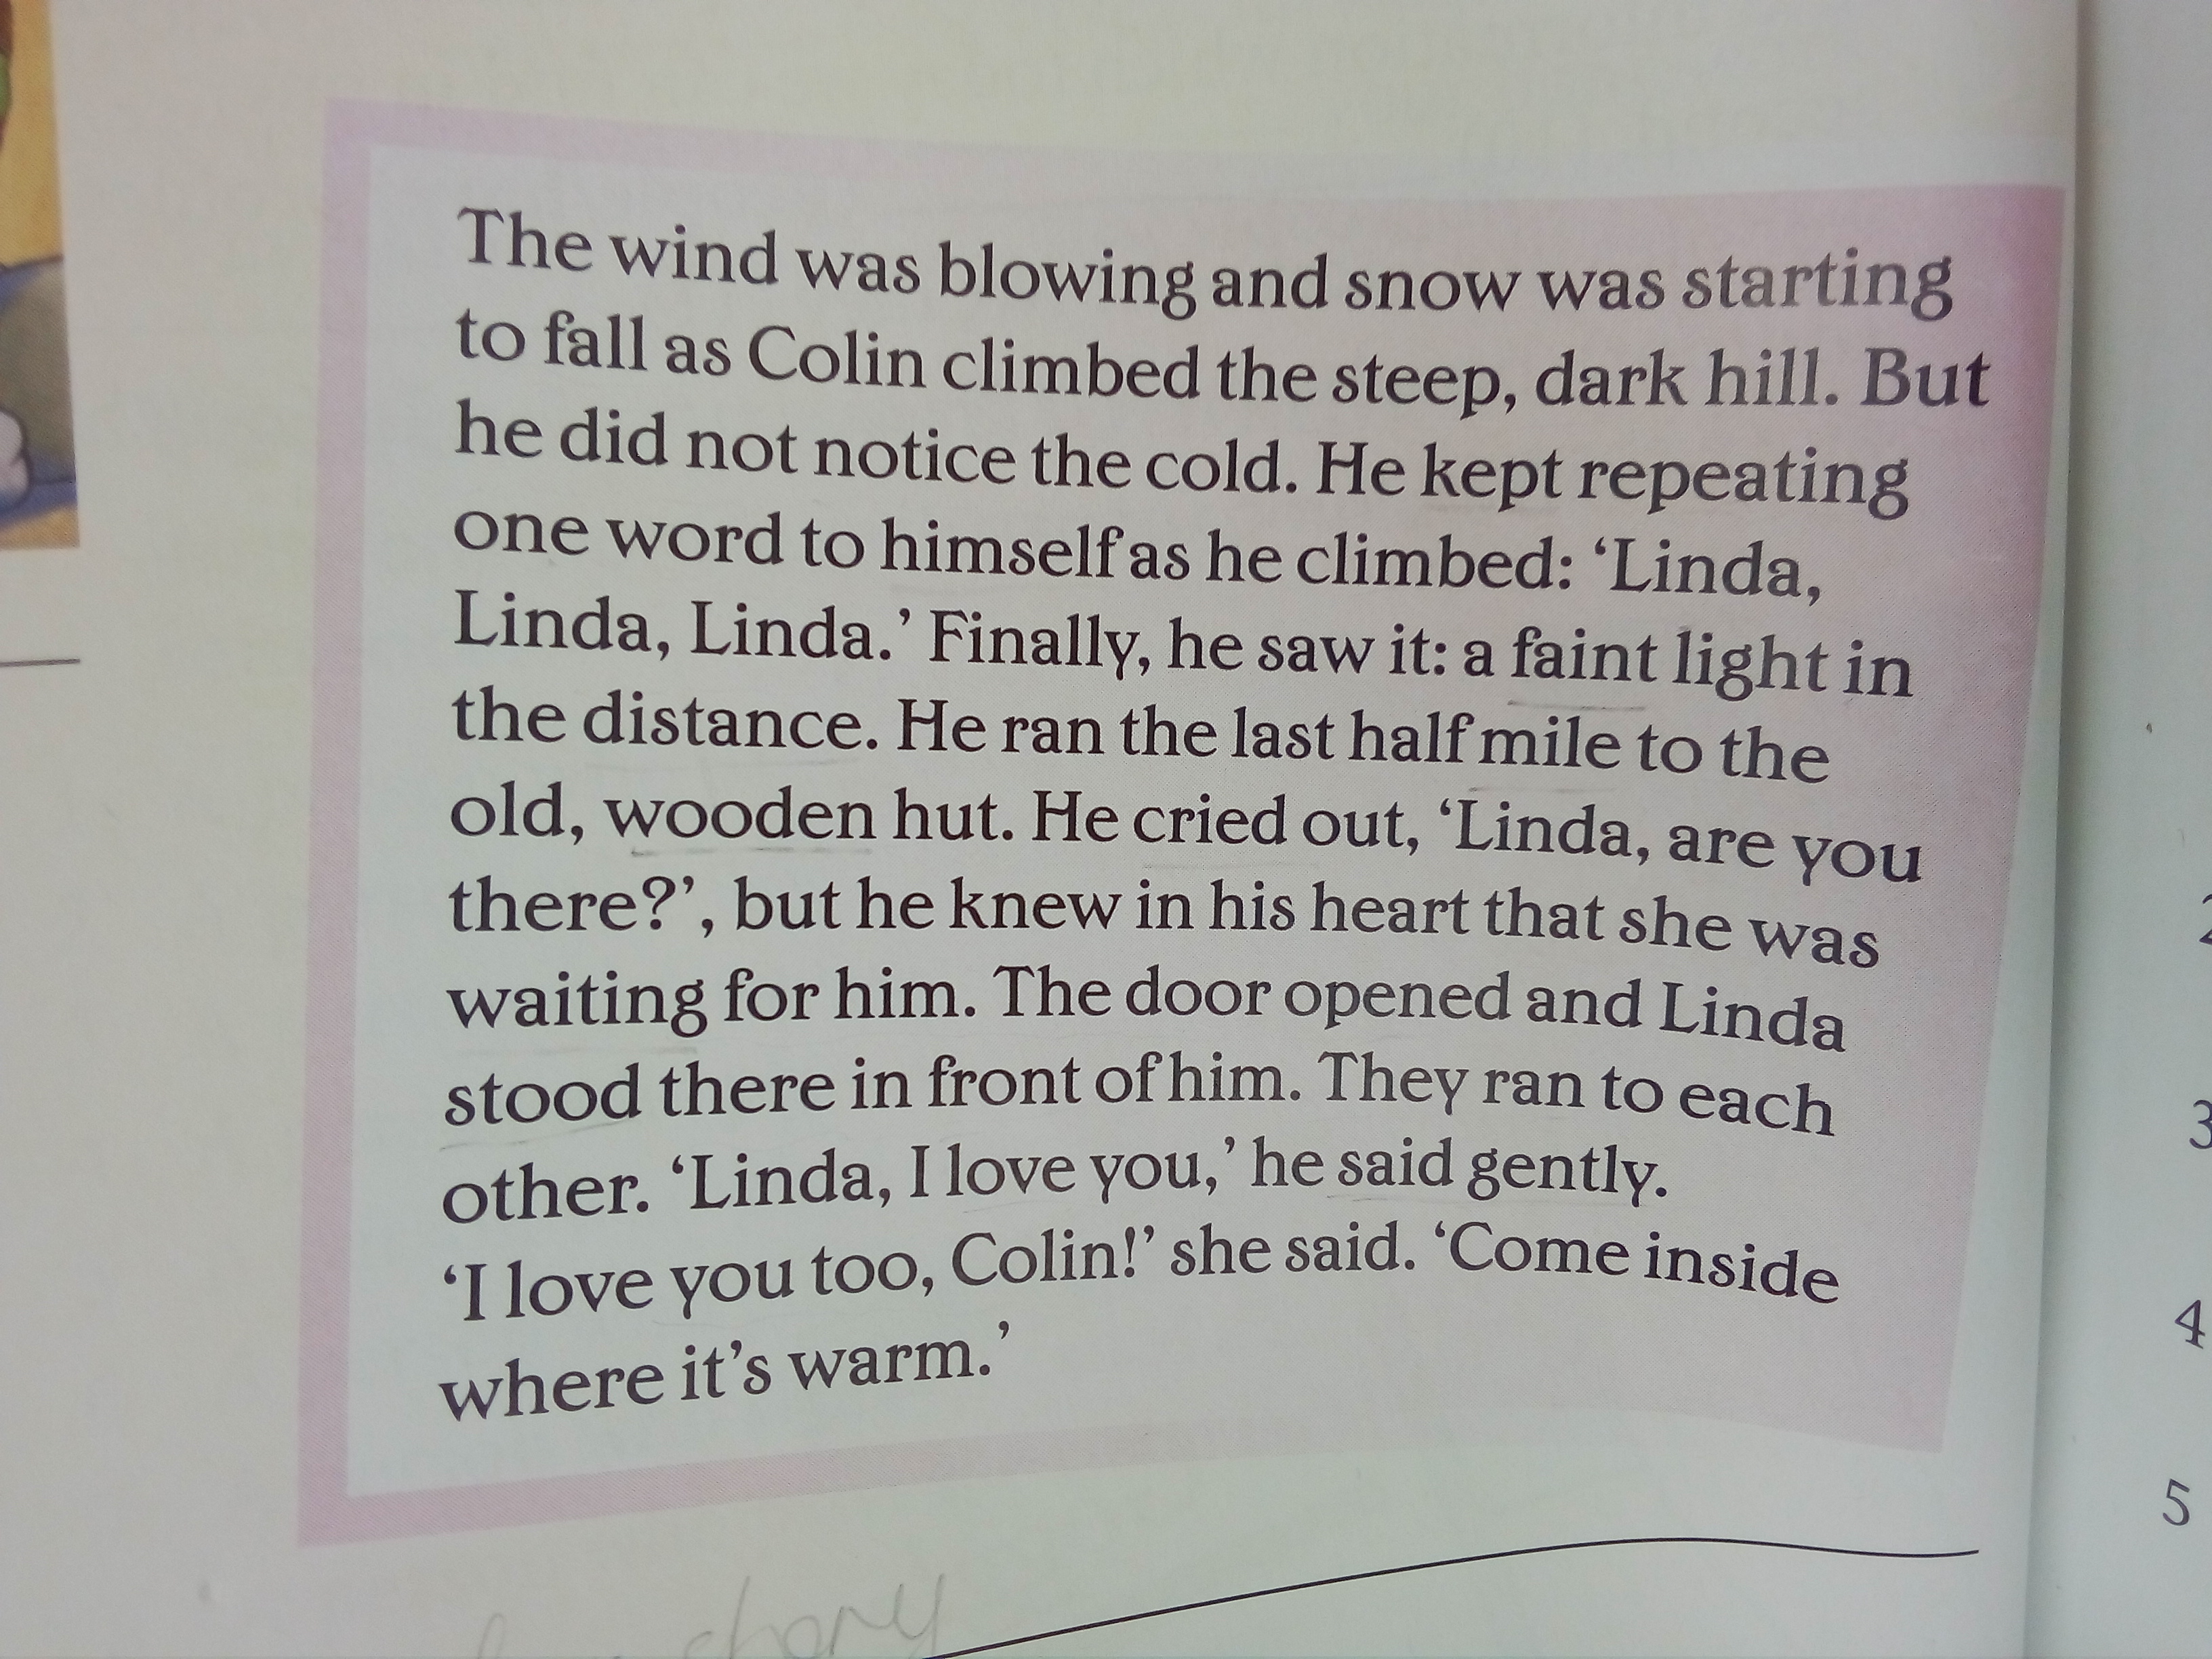 The wind was blowing and snow was starting
to fall as Colin climbed the steep, dark hill. But
he did not notice the cold. He kept repeating
one word to himself as he climbed: ‘Linda,
Linda, Linda.’ Finally, he saw it: a faint light in
the distance. He ran the last half mile to the
old, wooden hut. He cried out, ‘Linda, are you
there?’, but he knew in his heart that she was
waiting for him. The door opened and Linda
stood there in front of him. They ran to each
other. ‘Linda, I love you,’ he said gently.
‘I love you too, Colin!’ she said. ‘Come inside
where it’s warm.’
3
4
5